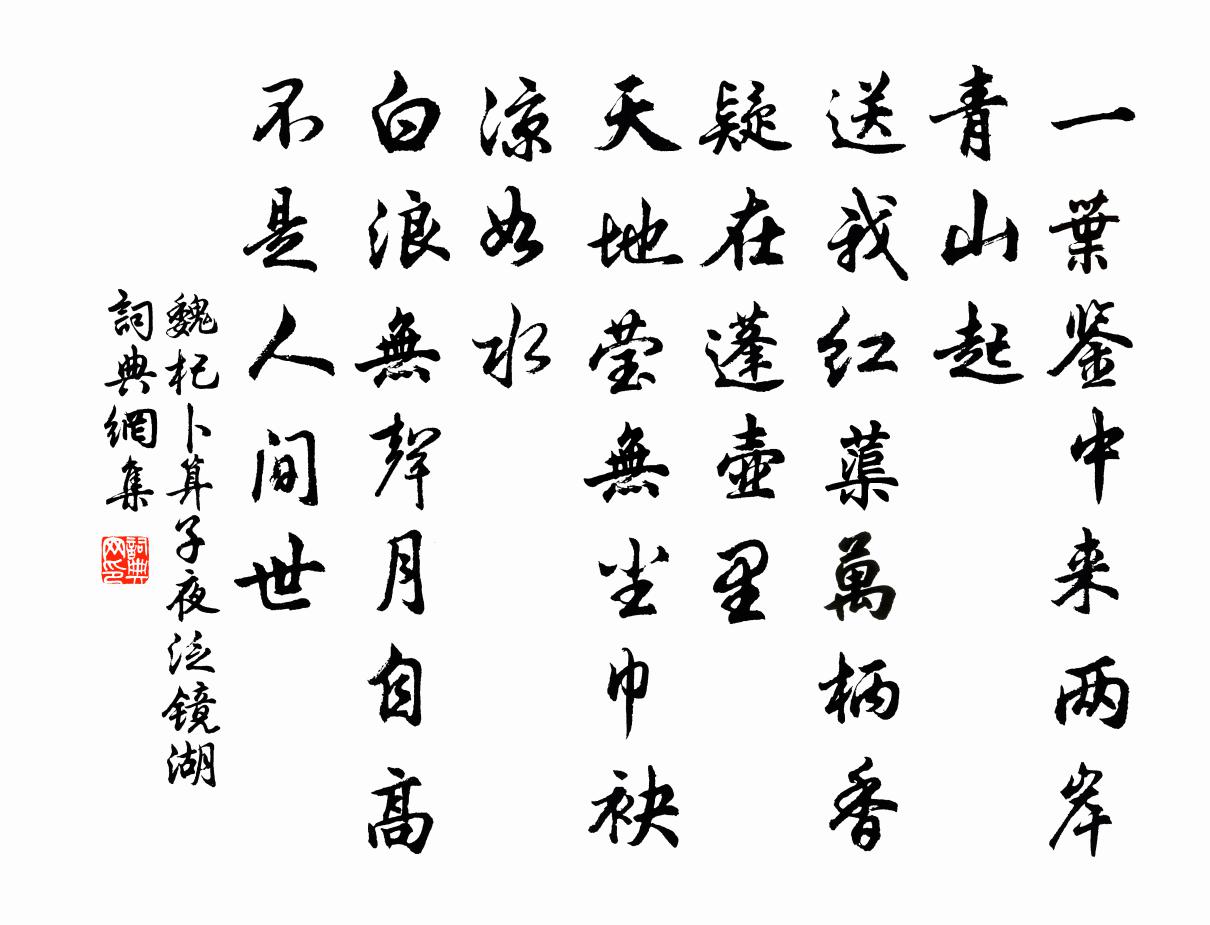 一葉鉴中来两岸
青山起
送我红蕖萬柄香
疑在蓬壺里
天地莹無尘巾袂
凉如水
白浪無聲月自高
不是人间世
魏杞卜算子夜泛镜湖
詞典網集
詞典网印